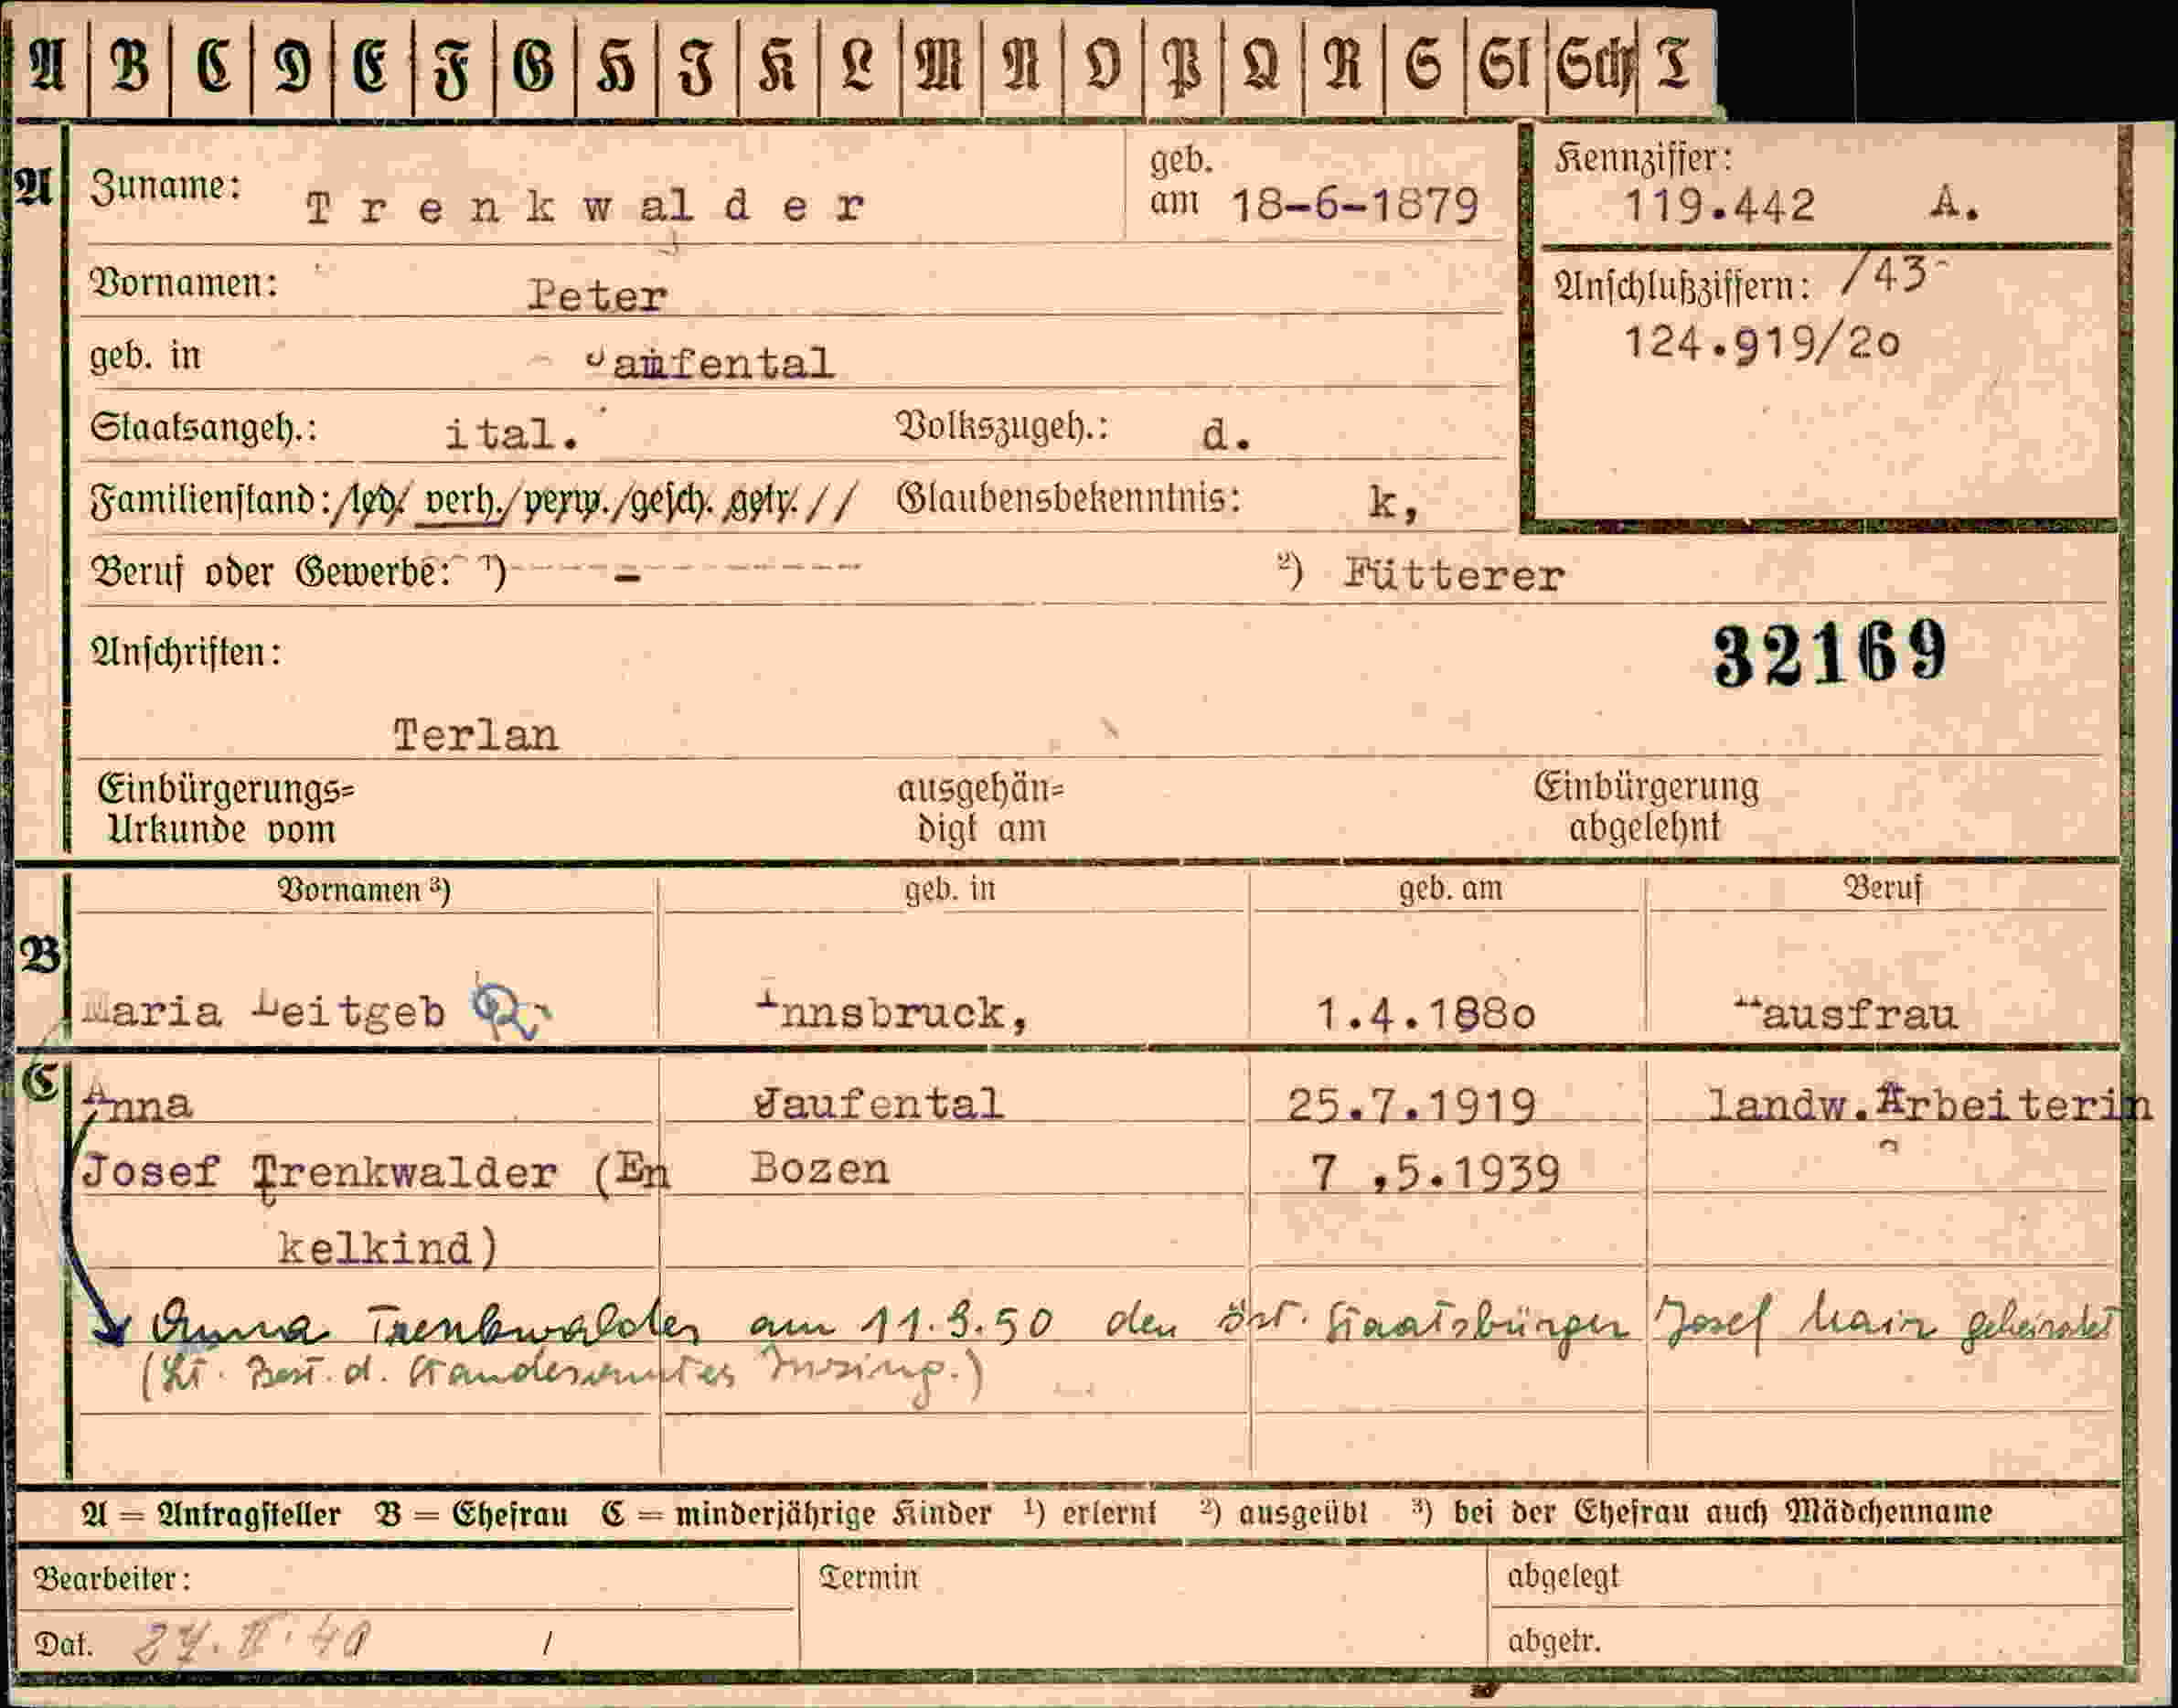 A B C D E F G H J K L M N O P Q R S St Sch T
A Zuname: Trenkwalder geb. am 18-6-1879 Kennziffer: 119.442 A.
Vornamen: Peter Anschlußziffern: /43
124.919/2o
geb. in Jaufental
Staatsangeh.: ital. Volkszugeh.: d.
Familienstand: /led/ verh./verw./gesch. getr. // Glaubensbekenntnis: k,
Beruf oder Gewerbe: 1) - 2) Fütterer
Anschriften: 32169
Terlan
Einbürgerungs= ausgehän= Einbürgerung
Urkunde vom digt am abgelehnt
Vornamen 3) geb. in geb. am Beruf
B
Maria Leitgeb Innsbruck, 1.4.188o Hausfrau
C Anna Jaufental 25.7.1919 landw.Arbeiterin
Josef Trenkwalder (En Bozen 7 ,5.1939
kelkind)
Anna Trenkwalder am 11.9.50 den öst. Staatsbürger Josef Mair geheiratet
(Lt. Best. d. Standesamtes Inzing.)
A = Antragsteller B = Ehefrau C = minderjährige Kinder 1) erlernt 2) ausgeübt 3) bei der Ehefrau auch Mädchenname
Bearbeiter: Termin abgelegt
Dat. / abgetr.